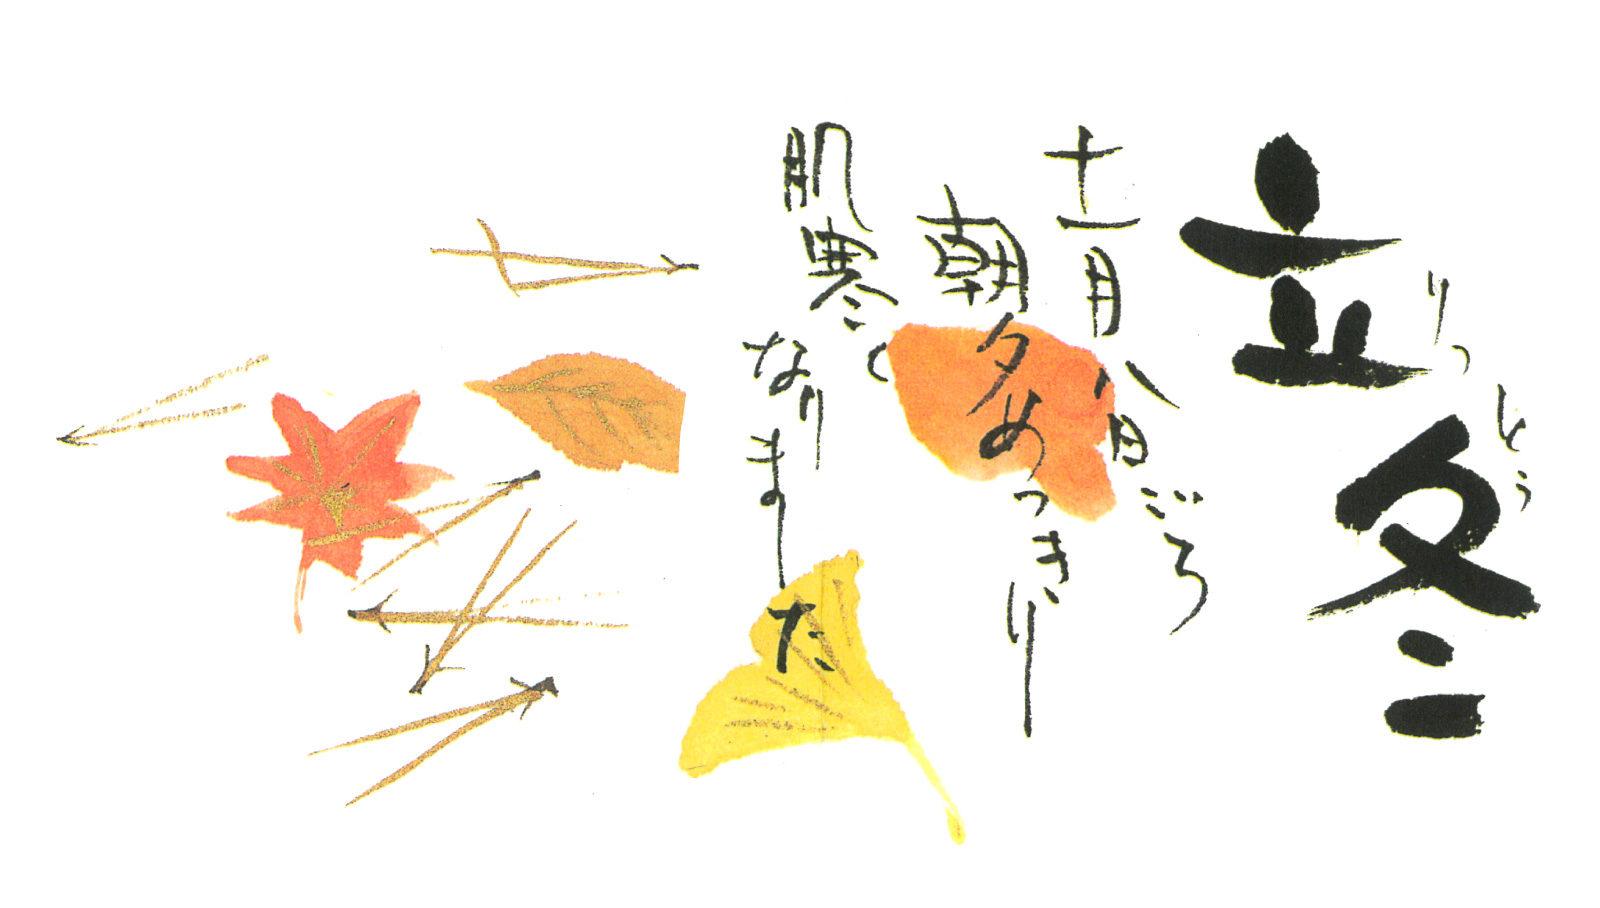 立冬
りっとう
十一月八日ごろ
朝夕めっきり
肌寒く
なりました